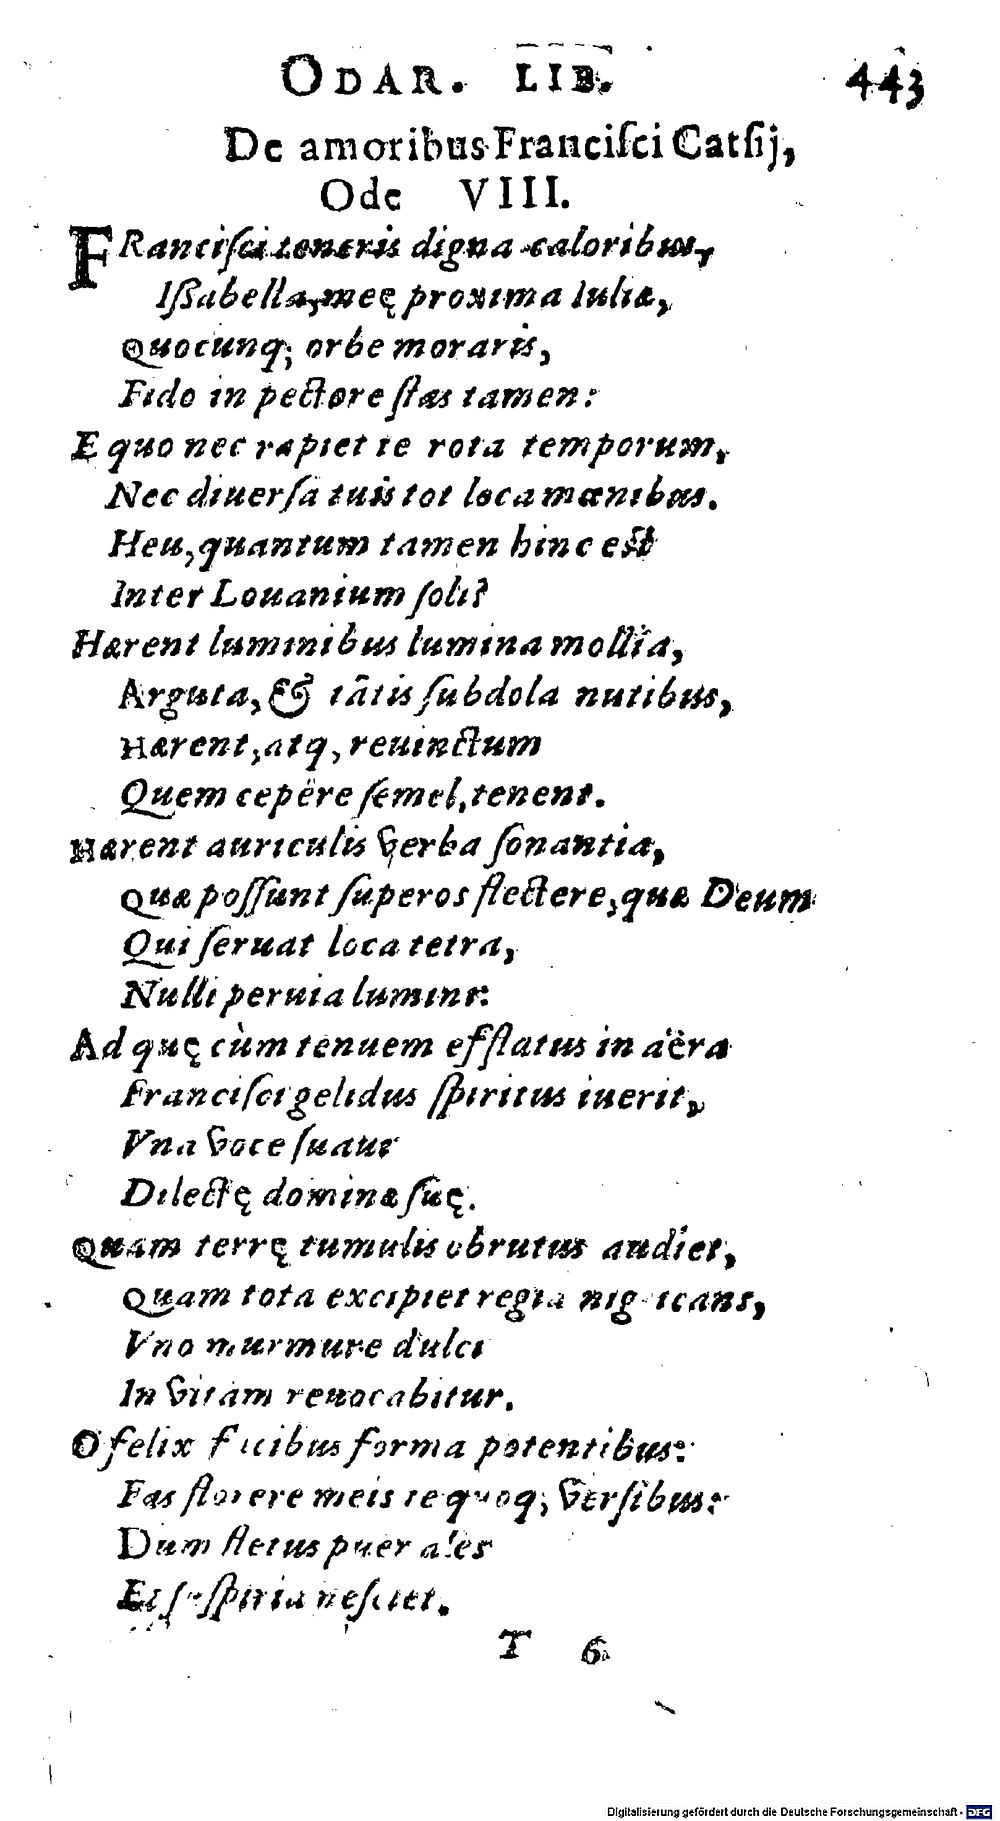 ODAR. LIB. 443
De amoribus Franciſci Catſij,
Ode VIII.
FRanciſci teneris digna caloribus,
Iſſabella, meę proxima Iuliæ,
Quocunq; orbe moraris,
Fido in pectore ſtas tamen:
E quo nec rapiet te rota temporum,
Nec diuerſa tuis tot loca mœnibus.
Heu, quantum tamen hinc eſt
Inter Louanium ſoli?
Hærent luminibus lumina mollia,
Arguta, & tātis ſubdola nutibus,
Hærent, atq, reuinctum
Quem cepêre ſemel, tenent.
Hærent auriculis verba ſonantia,
Quæ poſſunt ſuperos flectere, quæ Deum
Qui ſeruat loca tetra,
Nulli peruia lumine:
Ad quę cùm tenuem efflatus in aëra
Franciſci gelidus ſpiritus iuerit,
Vna voce ſuaue
Dilectę dominæ ſuę.
Quam terrę tumulis obrutus audiet,
Quam tota excipiet regia nigricans,
Vno murmure dulci
In vitam reuocabitur.
O felix facibus forma potentibus:
Fas florere meis te quoq; verſibus:
Dum fletus puer ales
Et ſuſpiria neſciet.
T 6
Digitalisierung gefördert durch die Deutsche Forschungsgemeinschaft - DFG